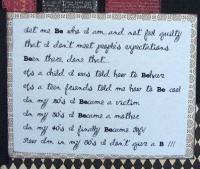 Let me Be who I am and not feel guilty
that I don't meet people's expectations
Been there, done that...
As a child I was told how to Behave
As a teen friends told me how to Be cool
In my 20's I Became a victim
In my 30's I Became a mother
In my 40's I finally Became ME!
Now I'm in my 50's I don't give a B !!!